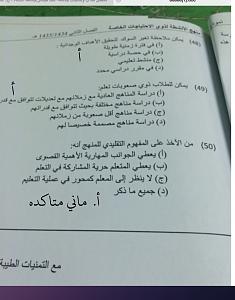 منهج الأنشطة لذوي الاحتياجات الخاصة
الفصل الثاني 1434/1435 هـ
(48) يمكن ملاحظة تغير السلوك لتحقيق الأهداف الوجدانية :
أ) في فترة زمنية طويلة
ب) في حصة دراسية
ج) منشط تعليمي
د) في مقرر دراسي محدد
(49) يمكن للطلاب ذوي صعوبات تعلم:
أ) دراسة المناهج العادية مع زملائهم مع تعديلات لتتوافق مع قدراتهم
ب) دراسة مناهج مختلفة بحيث تتوافق مع قدراتهم
ج) دراسة مناهج أقل صعوبة من زملائهم
د) دراسة مناهج مصممة خصيصا لهم
(50) من الأخذ على المفهوم التقليدي للمنهج أنه:
أ) يعطي الجوانب المهارية الأهمية القصوى
ب) يعطي المتعلم حرية المشاركة في التعلم
ج) لا ينظر إلى المعلم كمحور في عملية التعليم
د) جميع ما ذكر
أ. ماني متاكده
مع التمنيات الطيبة